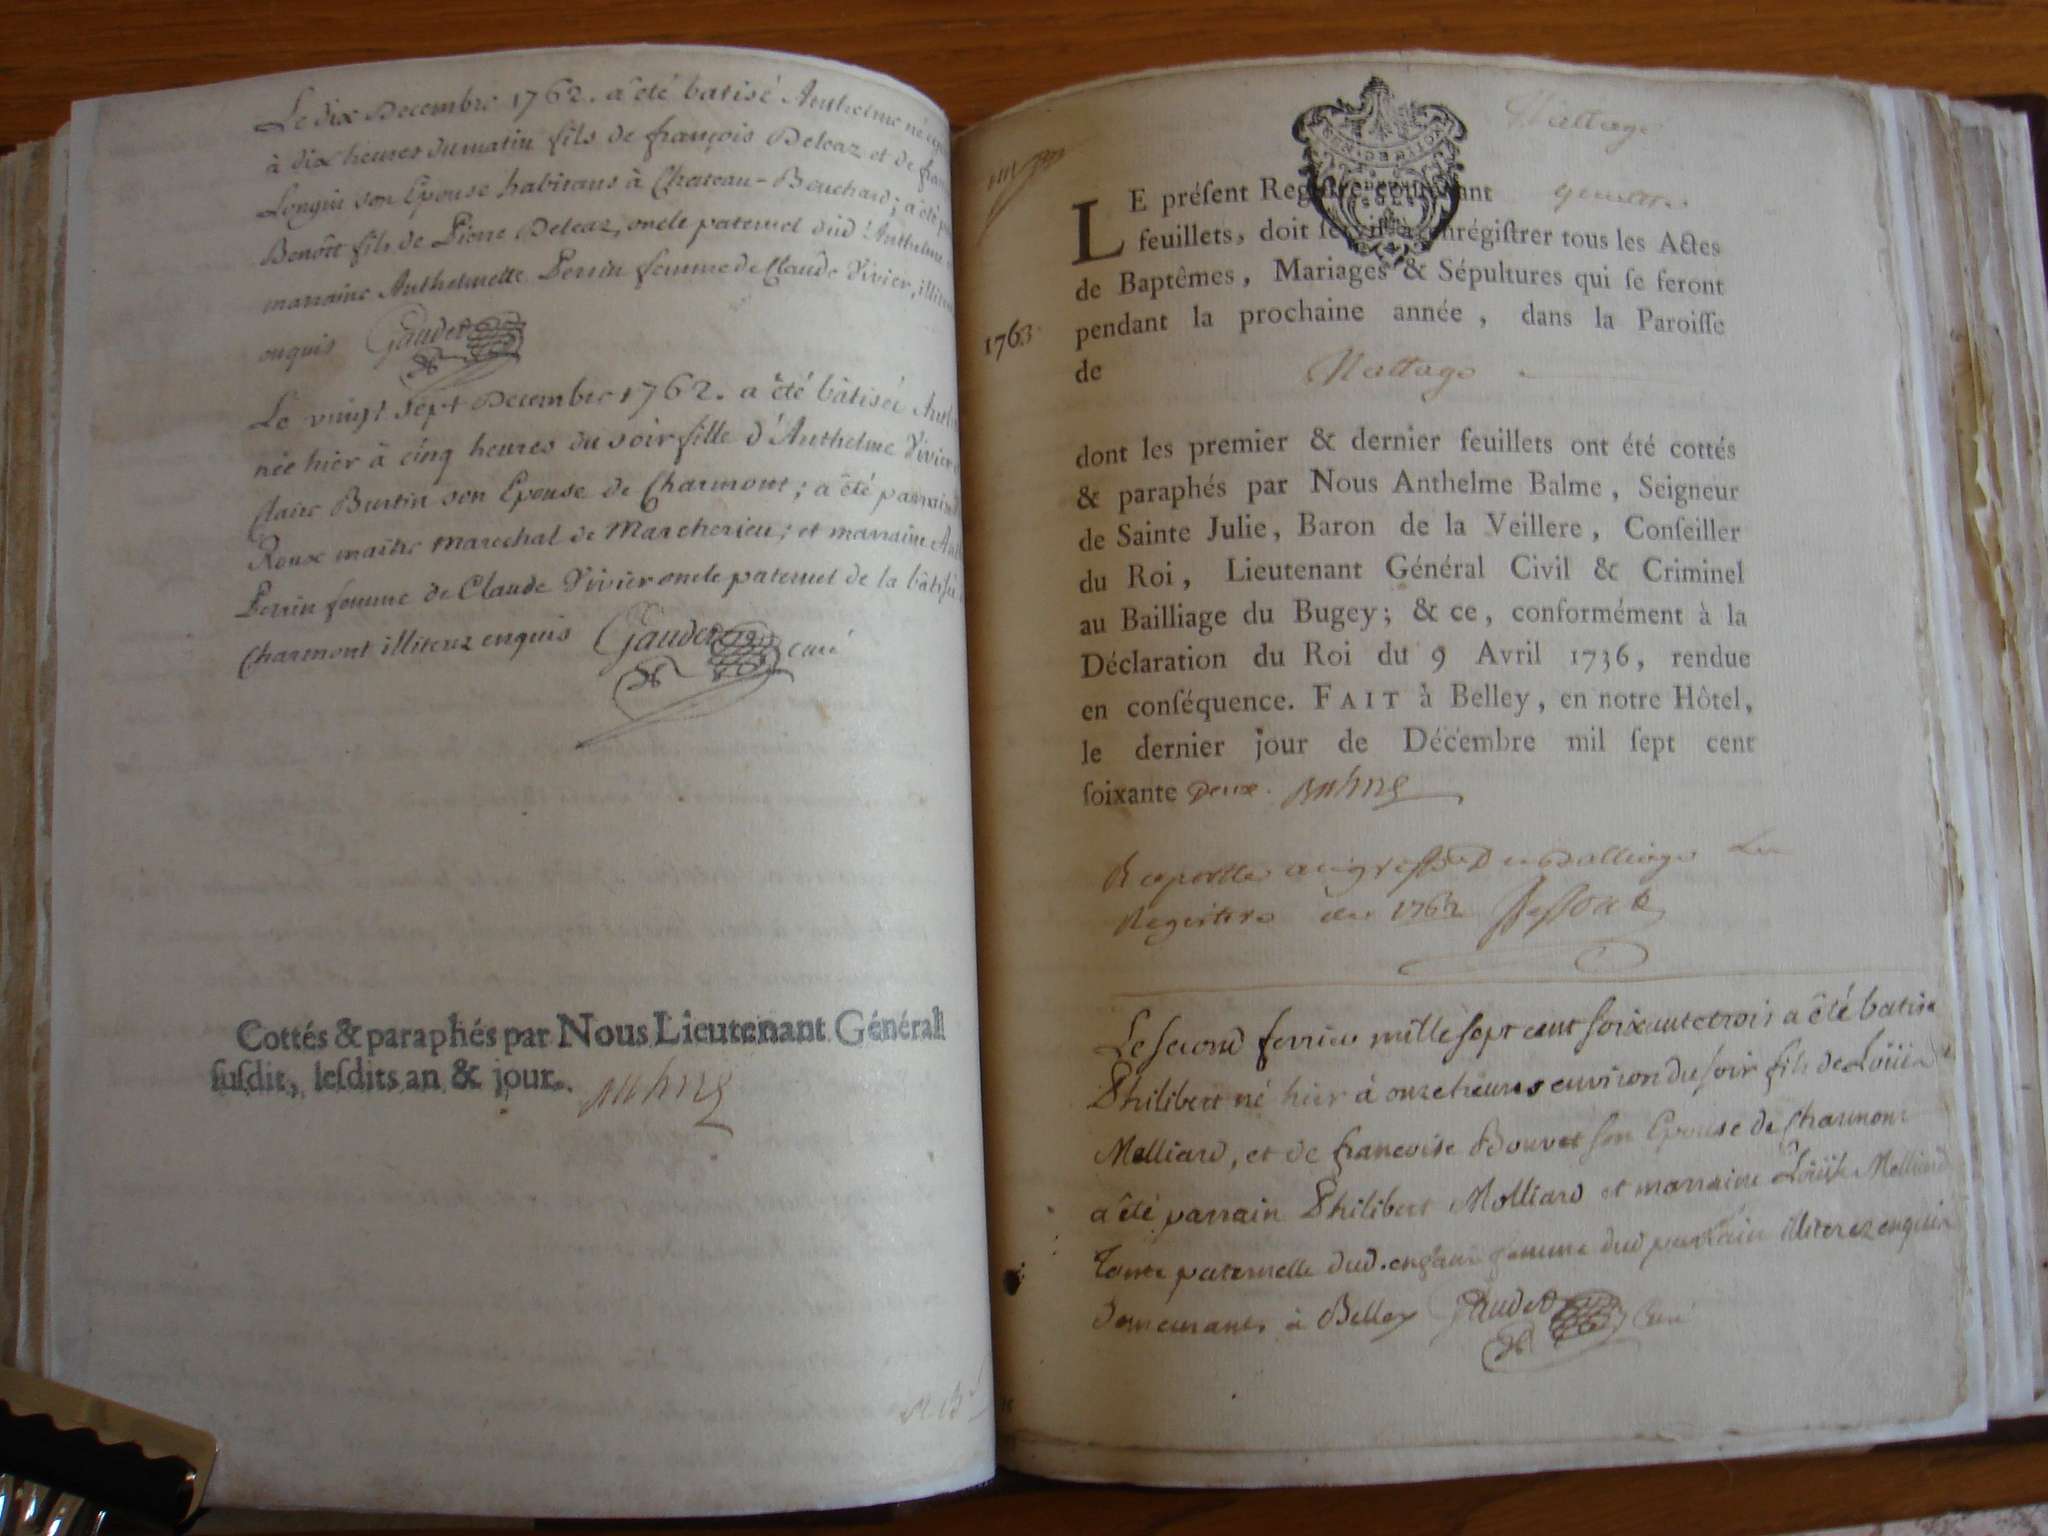 Le dix Decembre 1762. a êté batisé Anthelme né
à dix heures du matin fils de françois Deleaz et de
Longin son Epouse habitans à Chateau-Bouchard; a été
Benoît fils de Pierre Deleaz, oncle paternel dud Anthelme
marraine Anthelmette Perrin femme de Claude Vivier,
enquis Gaudet
Le vingt sept Decembre 1762. a été bâtiséé
née hier à cinq heures du soir fille d'Anthelme Vivier
Claire Burtin son Epouse de Charmont; a été parrain
Roux maître marechal de Marcherieu; et marraine
Perrin femme de Claude Vivier oncle paternel de la
Charmont illiterez enquis Gaudet curé
Cottés & paraphés par Nous Lieutenant Général
susdit, lesdits an & jour.
Nattage
LE présent Registre contenant
feuillets, doit enrégistrer tous les Actes
de Baptêmes, Mariages & Sépultures qui se feront
1763 pendant la prochaine année, dans la Paroisse
de Nattage
dont les premier & dernier feuillets ont été cottés
& paraphés par Nous Anthelme Balme, Seigneur
de Sainte Julie, Baron de la Veillere, Conseiller
du Roi, Lieutenant Général Civil & Criminel
au Bailliage du Bugey; & ce, conformément à la
Déclaration du Roi du 9 Avril 1736, rendue
en conséquence. FAIT à Belley, en notre Hôtel,
le dernier jour de Décembre mil sept cent
soixante Deux. Balme
Registre de 1762
Le second fevrier mille sept cent soixante trois a êté batisé
Philibert né hier à onze heures environ du soir fils de Loüis
Molliard, et de françoise Bouvet son Epouse de Charmont
a êté parrain Philibert Molliard et marraine Loüise Molliard
Tante paternelle dud. enfant femme dud parrain illiterez enquis
Demeurants à Belley Gaudet Curé